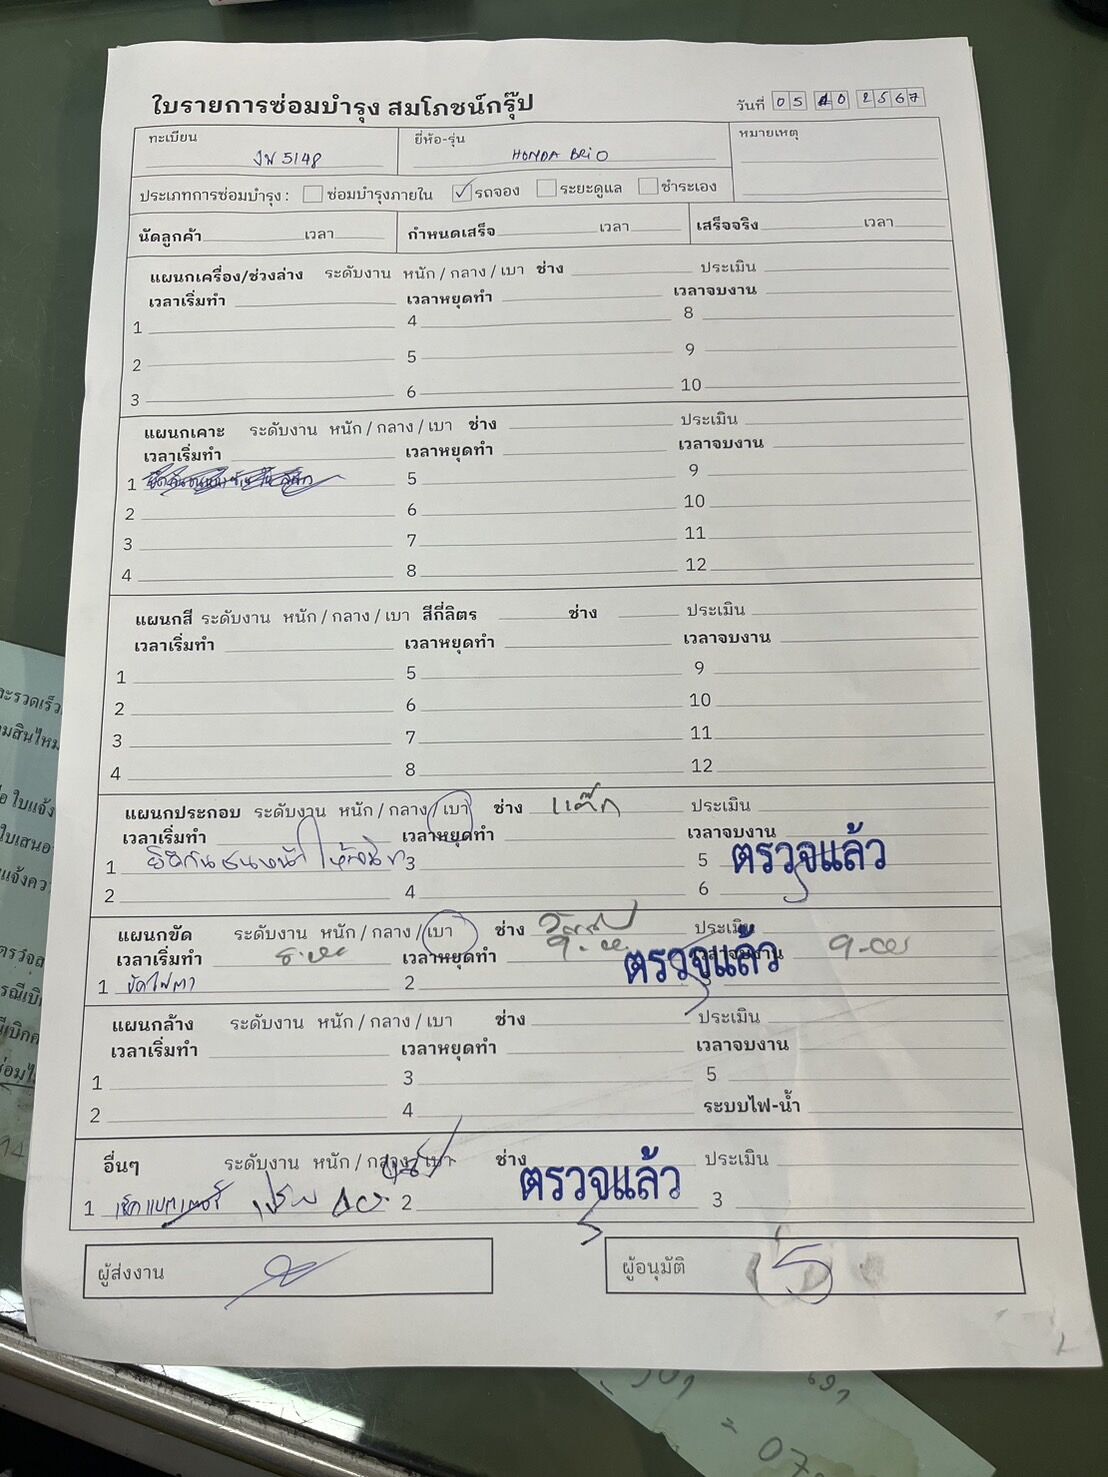 ใบรายการซ่อมบำรุง สมโภชน์กรุ๊ป
วันที่ 05 10 2567
ทะเบียน ยี่ห้อ-รุ่น หมายเหตุ
5148 HONDA BRiO
ประเภทการซ่อมบำรุง : ซ่อมบำรุงภายใน รถจอง ระยะดูแล ชำระเอง
นัดลูกค้า เวลา กำหนดเสร็จ เวลา เสร็จจริง เวลา
แผนกเครื่อง/ช่วงล่าง ระดับงาน หนัก / กลาง / เบา ช่าง ประเมิน
เวลาเริ่มทำ เวลาหยุดทำ เวลาจบงาน
1 4 8
2 5 9
3 6 10
แผนกเคาะ ระดับงาน หนัก / กลาง / เบา ช่าง ประเมิน
เวลาเริ่มทำ เวลาหยุดทำ เวลาจบงาน
1 5 9
2 6 10
3 7 11
4 8 12
แผนกสี ระดับงาน หนัก / กลาง / เบา สีกี่ลิตร ช่าง ประเมิน
เวลาเริ่มทำ เวลาหยุดทำ เวลาจบงาน
1 5 9
2 6 10
3 7 11
4 8 12
แผนกประกอบ ระดับงาน หนัก / กลาง / เบา ช่าง แต๊ก ประเมิน
เวลาเริ่มทำ เวลาหยุดทำ เวลาจบงาน
1 ยึดกันชนหน้า 3 5 ตรวจแล้ว
2 4 6
แผนกขัด ระดับงาน หนัก / กลาง / เบา ช่าง ประเมิน
เวลาเริ่มทำ เวลาหยุดทำ เวลาจบงาน
ตรวจแล้ว
1 ขัดไฟตา 2
แผนกล้าง ระดับงาน หนัก / กลาง / เบา ช่าง ประเมิน
เวลาเริ่มทำ เวลาหยุดทำ เวลาจบงาน
1 3 5
2 4 ระบบไฟ-น้ำ
อื่นๆ ระดับงาน หนัก / กลาง / เบา ช่าง ประเมิน
1 เช็คแบตเตอรี่ 2 ตรวจแล้ว 3
ผู้ส่งงาน ผู้อนุมัติ